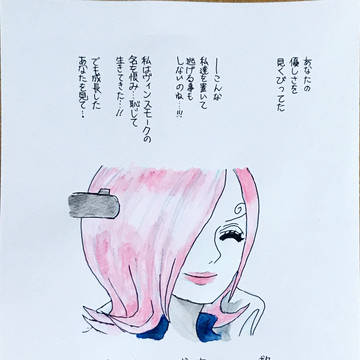 あなたの
優しさを
見くびってた
──こんな
私達を置いて
逃げる事も
しないのね…!!!
私はヴィンスモークの
名を恨み…恥じて
生きてきた…!!
でも成長した
あなたを見て・